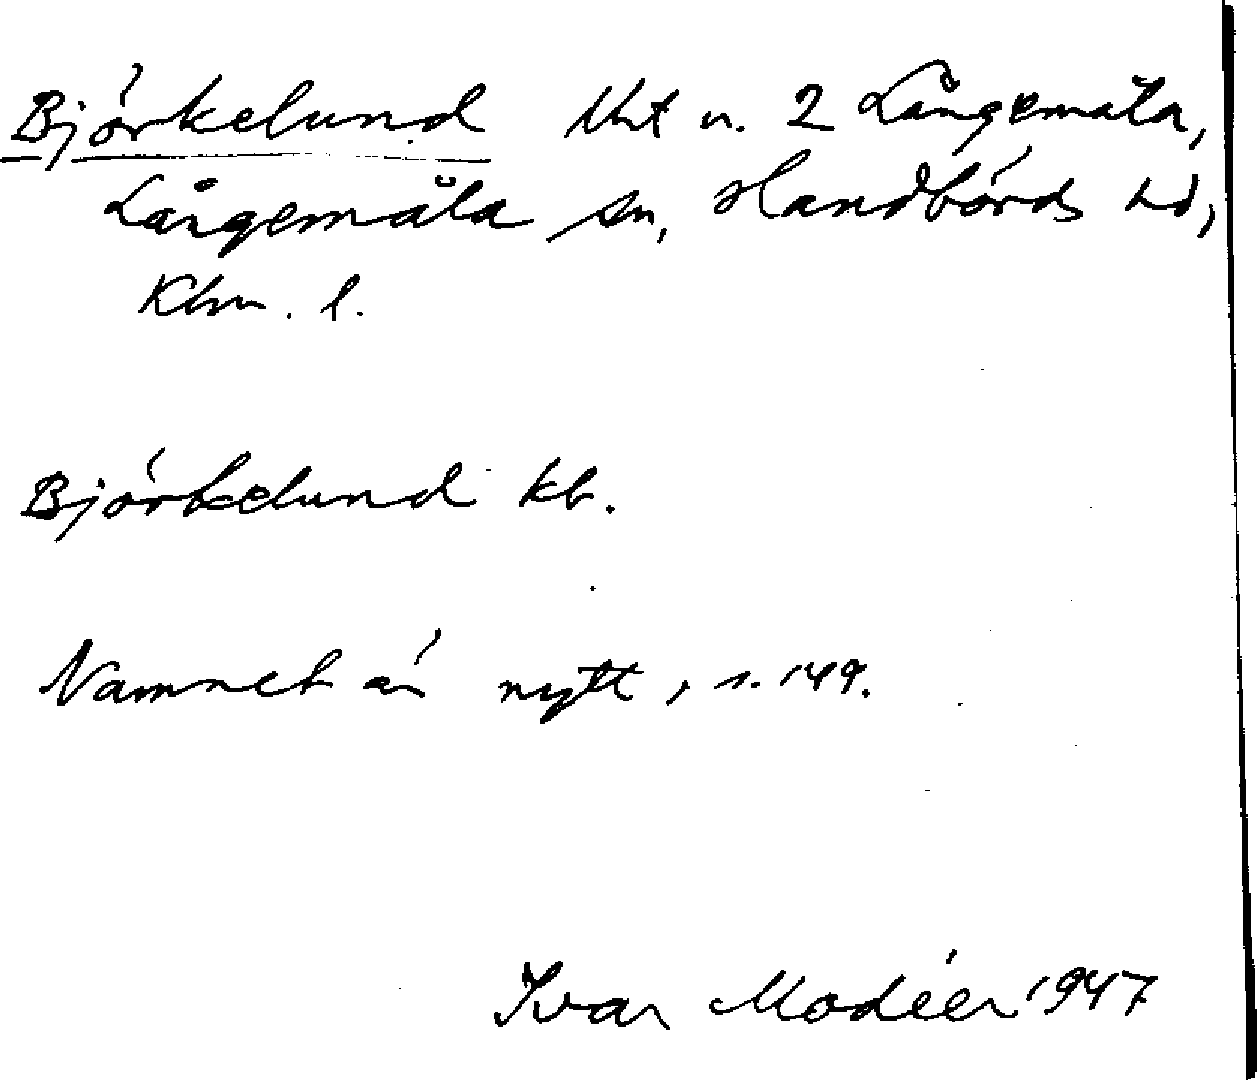 Björkelund Uht n. 2 Långemåla,
Långemåla sn, Handbörds hd,
Klm. l.
Björkelund kb.
Namnet är nytt, s. 149.
Ivar Modéer 1947